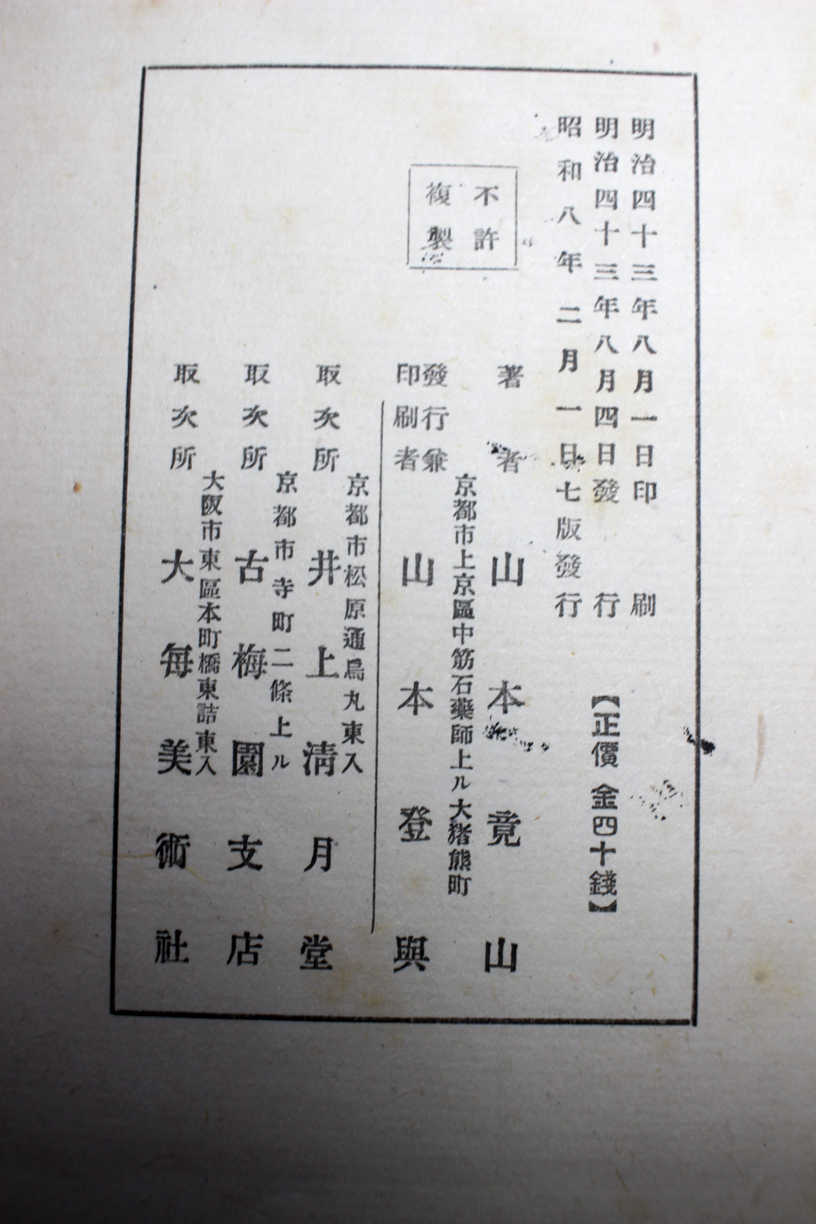 明治四十三年八月一日印刷
明治四十三年八月四日發行
昭和八年二月一日七版發行
【正價金四十錢】
不許
複製
著者 山本竟山
京都市上京區中筋石藥師上ル大猪熊町
發行兼
印刷者 山本登與
京都市松原通烏丸東入
取次所 井上淸月堂
京都市寺町二條上ル
取次所 古梅園支店
大阪市東區本町橋東詰東入
取次所 大每美術社